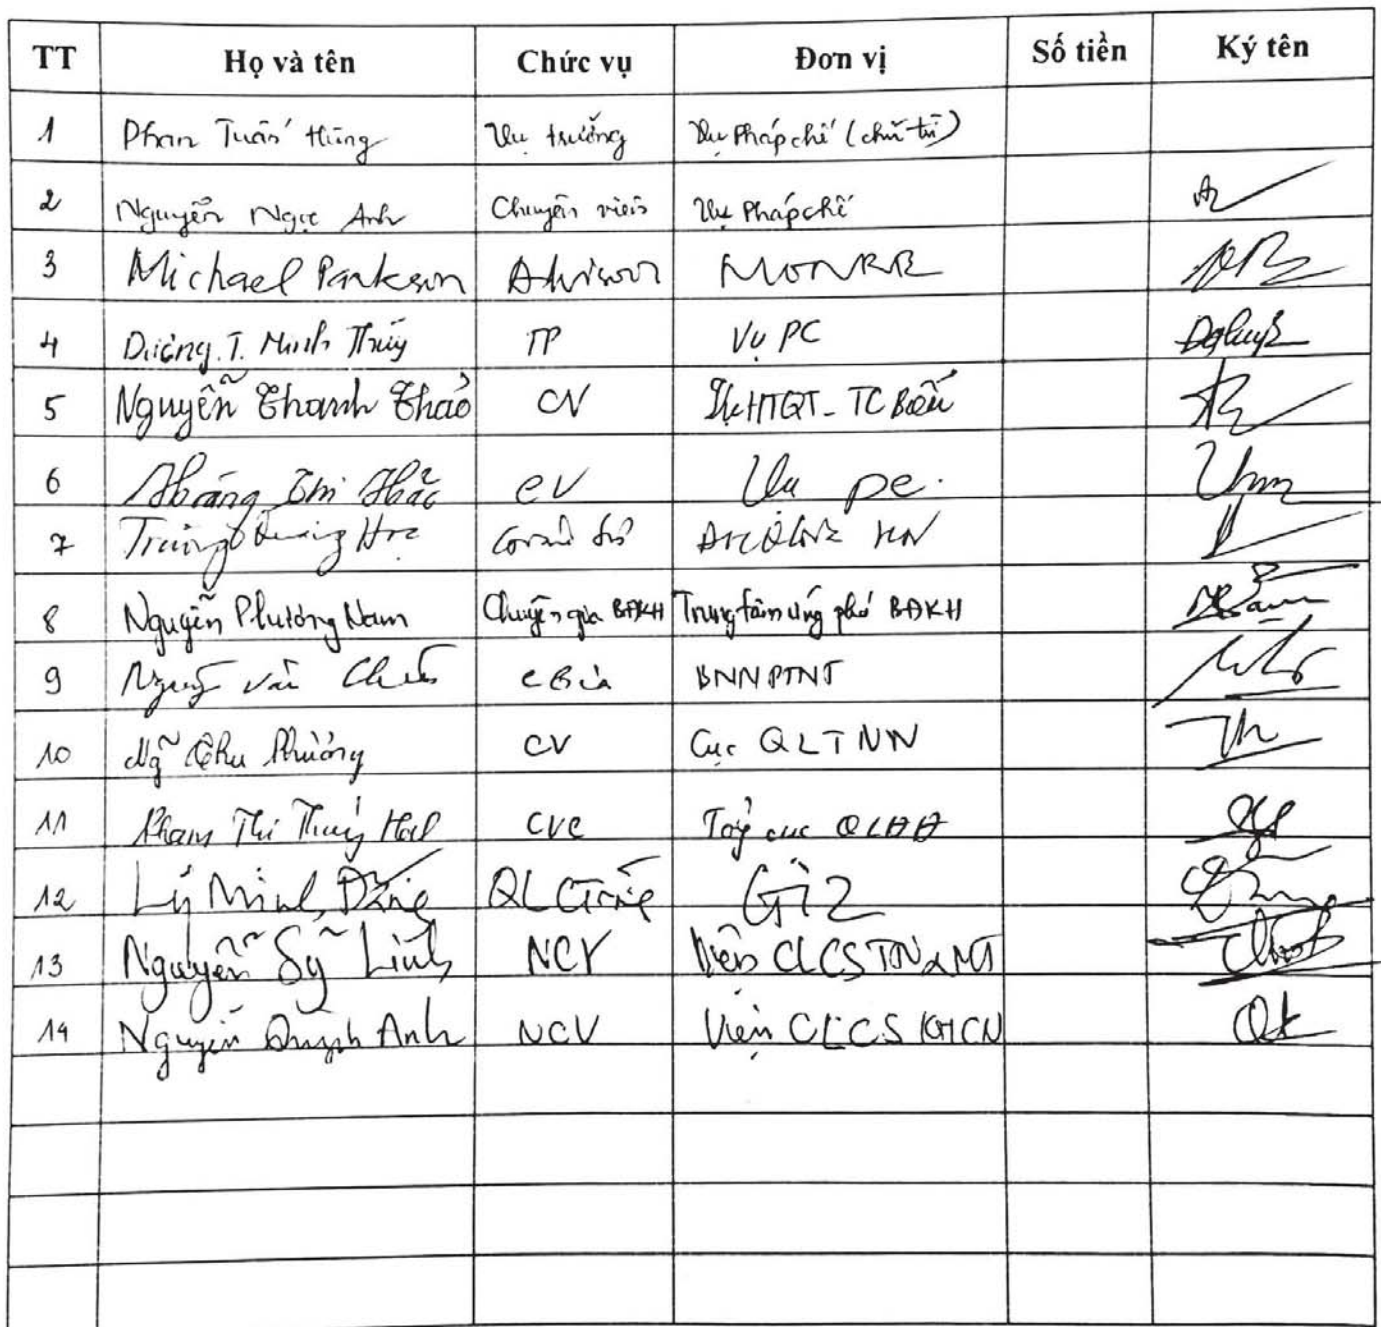 TT Họ và tên Chức vụ Đơn vị Số tiền Ký tên
1 Phan Tuấn Hùng Vụ trưởng Vụ Pháp chế (chủ trì)
2 Nguyễn Ngọc Anh Chuyên viên Vụ Pháp chế
3 Michael Parkson Advisor MONRE
4 Dương T. Minh Thúy TP Vụ PC
5 Nguyễn Thanh Thảo CV HTQT - TC Biển
6 CV Vụ PC.
7 HN
8 Nguyễn Phương Nam Chuyên gia BĐKH Trung tâm ứng phó BĐKH
9 BNNPTNT
10 Ng~ Thu Phương CV Cục QLTNN
11 Phạm Thị Thúy CVC QLĐĐ
12 Lý Minh Đăng QL GIZ
13 Nguyễn Sỹ Linh NCV Viện CLCSTN&MT
14 Nguyễn Quỳnh Anh NCV Viện CLCS KHCN